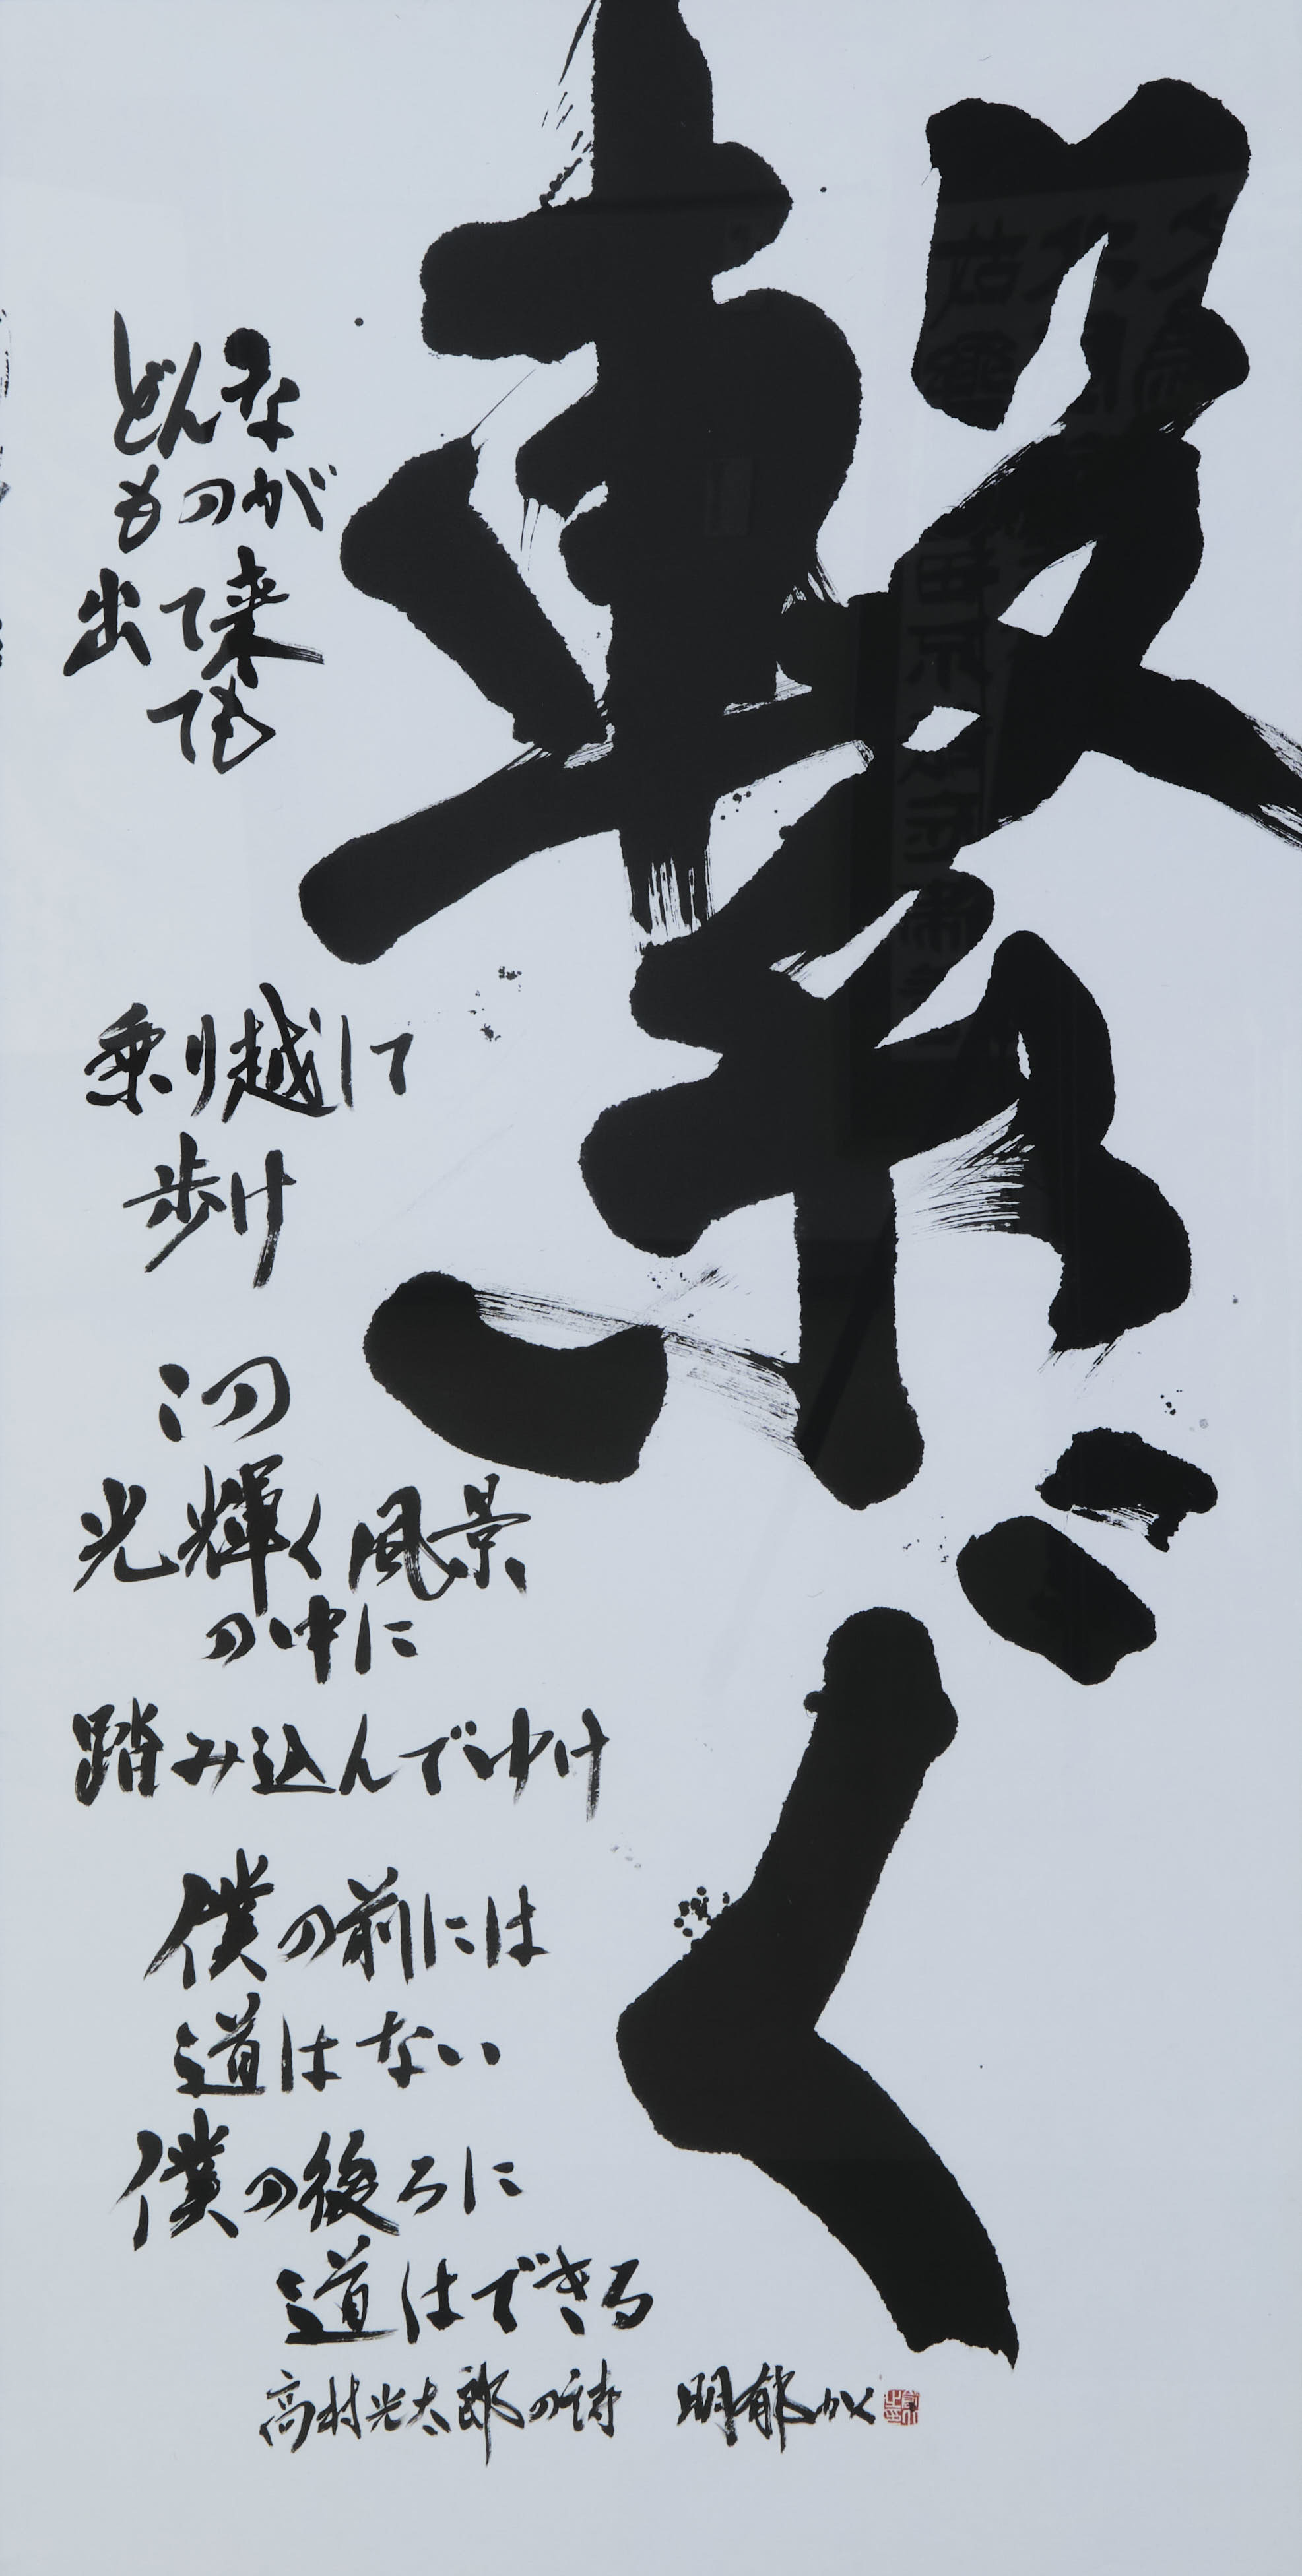 繋ぐ
どんな
ものが
出て来
ても
乗り越して
歩け
この
光輝く風景
の中に
踏み込んでゆけ
僕の前には
道はない
僕の後ろに
道はできる
高村光太郎の詩 明郁かく